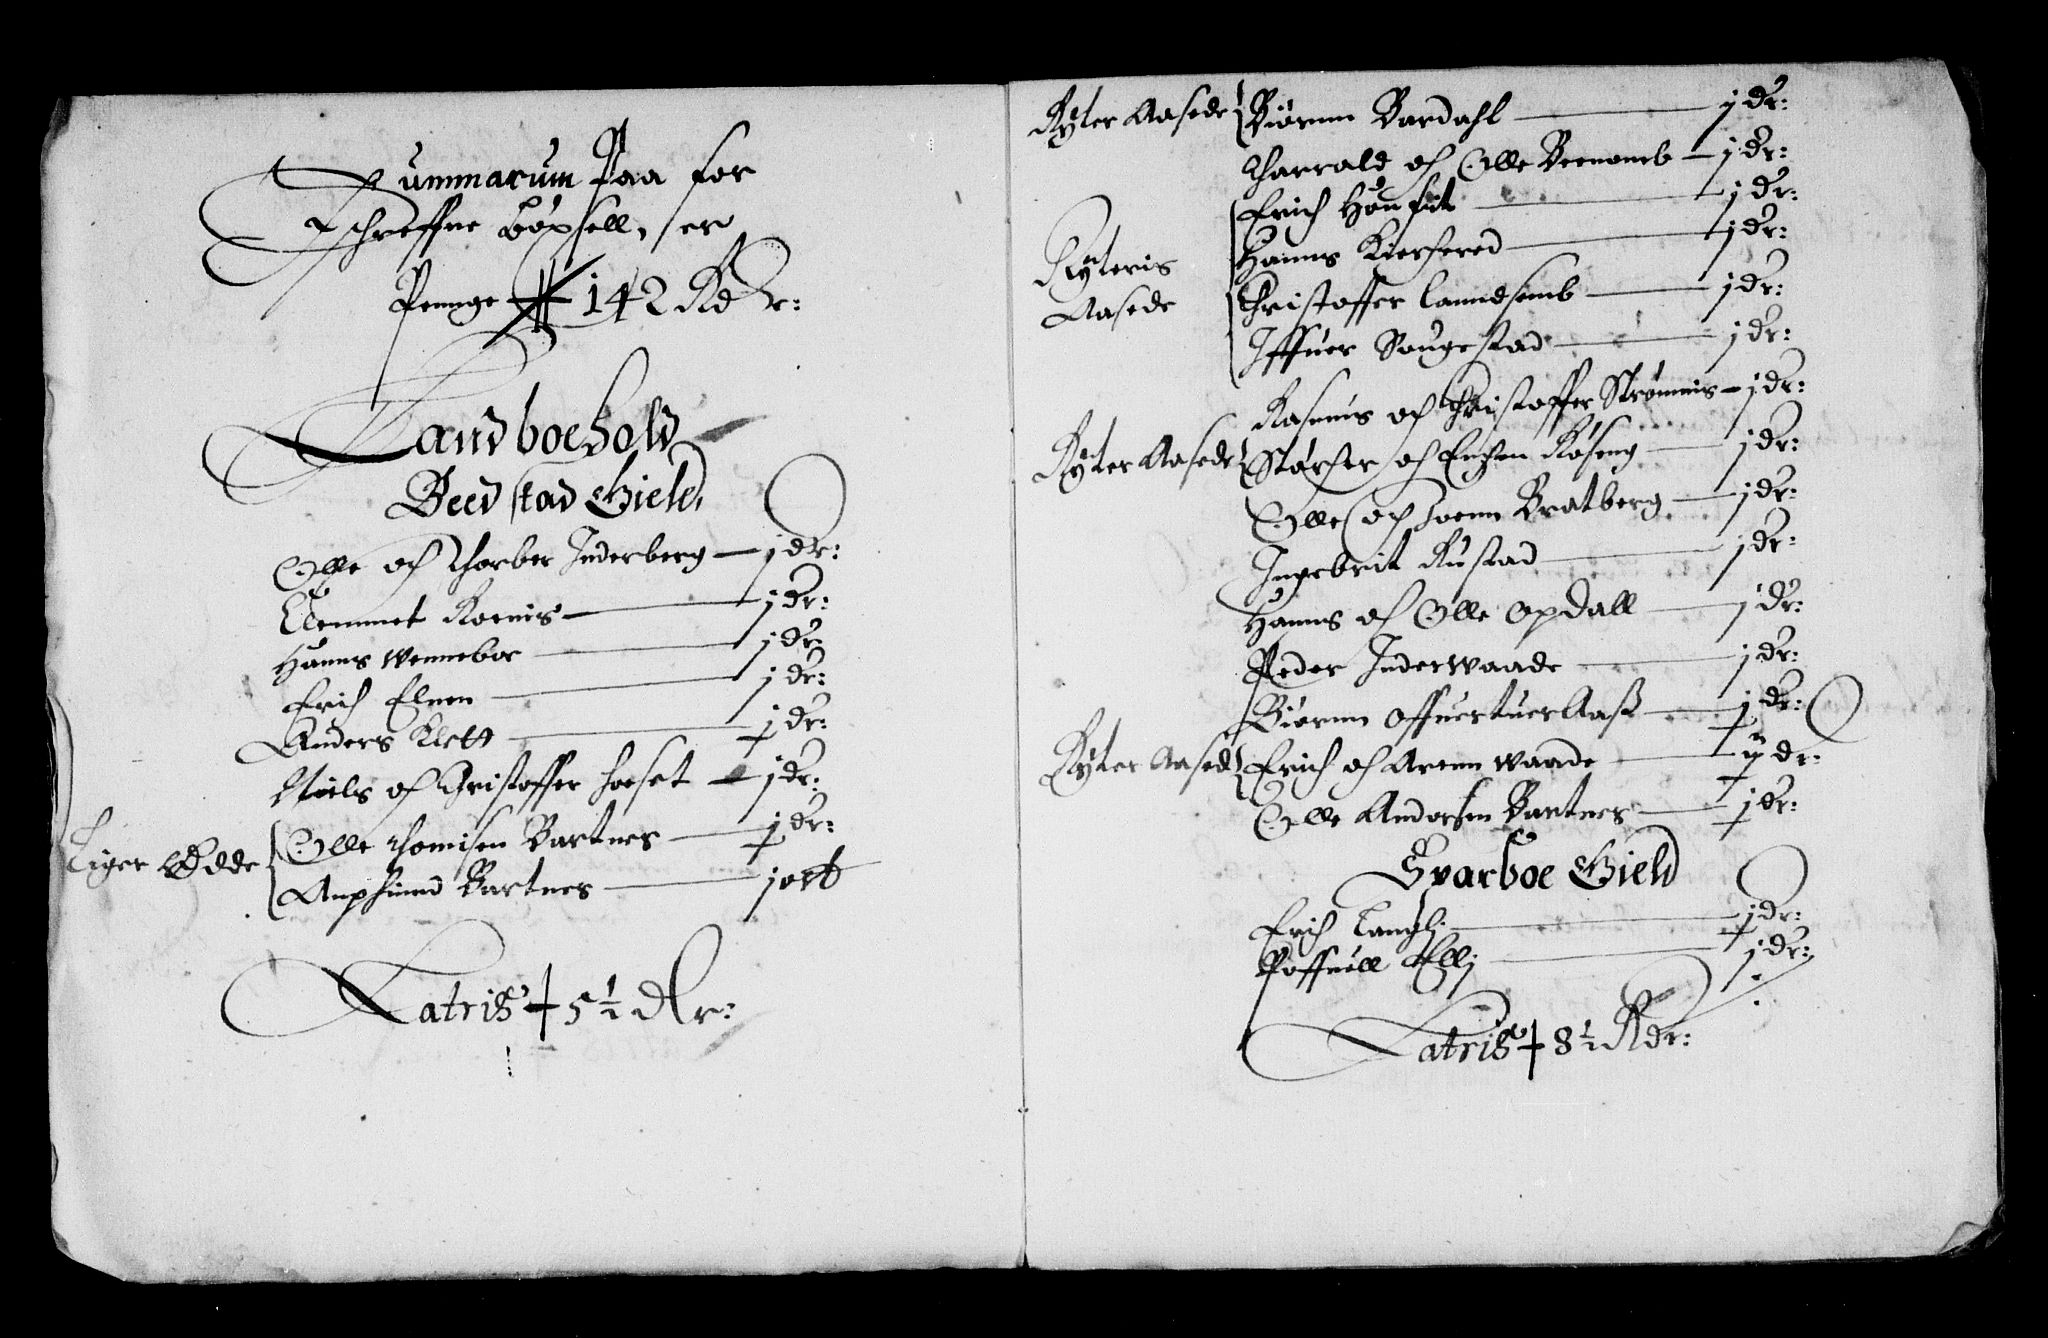 Summarum paa for
schreffne böxsell, er
Pennge 142 Rdr:
Landboehold
Beedstad Gield
Olle och Thorber Inderberg — j dr:
Clemmet Koenis — j dr:
Hanns Wennebor — j dr:
Erich Elnen — j dr:
Anders Klett — j dr:
Niels och Christoffer Hoeset — j dr:
Liger Ødde { Olle Thomisen Bartnes — j dr:
Amphinnd Bartnes — j ort
Latris 5½ dlr:
Ryter Aasede { Biörnn Bardahl — j dr:
Tharrald och Olle Beenomb — j dr:
Erich Hou — j dr:
Ryteris Aasede { Hanns Kiersered — j dr:
Christoffer Lanndsemb — j dr:
Iffuer Sougestad — j dr:
Rasmus och Christoffer Strömnis — j dr:
Ryter Aasede { och Röseng — j dr:
Olle och Joenn Bratberg — j dr:
Ingebrit Rustad — j dr:
Hanns och Olle Opdall — j dr:
Peder Inderwaade — j dr:
Biörnn Offuertuer Aass — j dr:
Ryter Aasede { Erich och Arenn Waade — ij dr:
Olle Andersen Bartnes — j dr:
Svarboe Gield
Erich Langli — j dr:
Poffuell Elli — j dr:
Latris 8½ Rdr: